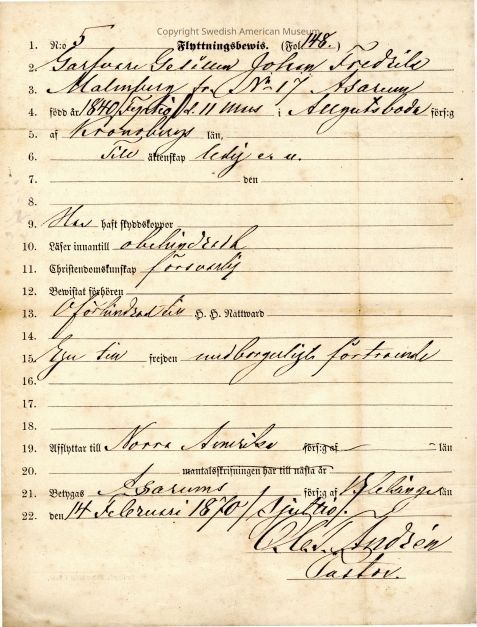 Copyright Swedish American Museum
1. N:o 5 Flyttningsbewis. (Fol 148.)
2. Garfvare Gesällen Johan Fredrik
3. Malmberg fr. No 17 Asarum
4. född år 1840 /Fyrtio/ d. 11 Maj i Elmeboda förs:g
5. af Kronobergs län,
6. Till äktenskap ledig är n.
7. den
8.
9. Har haft skyddskoppor
10. Läser innantill obehindradt
11. Christendomskunskap försvarlig
12. Bewistat förhören
13. Oförhindrad till H. H. Nattward
14.
15. Eger frejden medborgerligt förtroende
16.
17.
18.
19. Afflyttar till Norra Amerika förs:g af län
20. mantalsskrifningen här till nästa år
21. Betygas Asarums förs:g af Blekinge län
22. den 14 Februari 1870 /Sjuttio/.
Pastor.